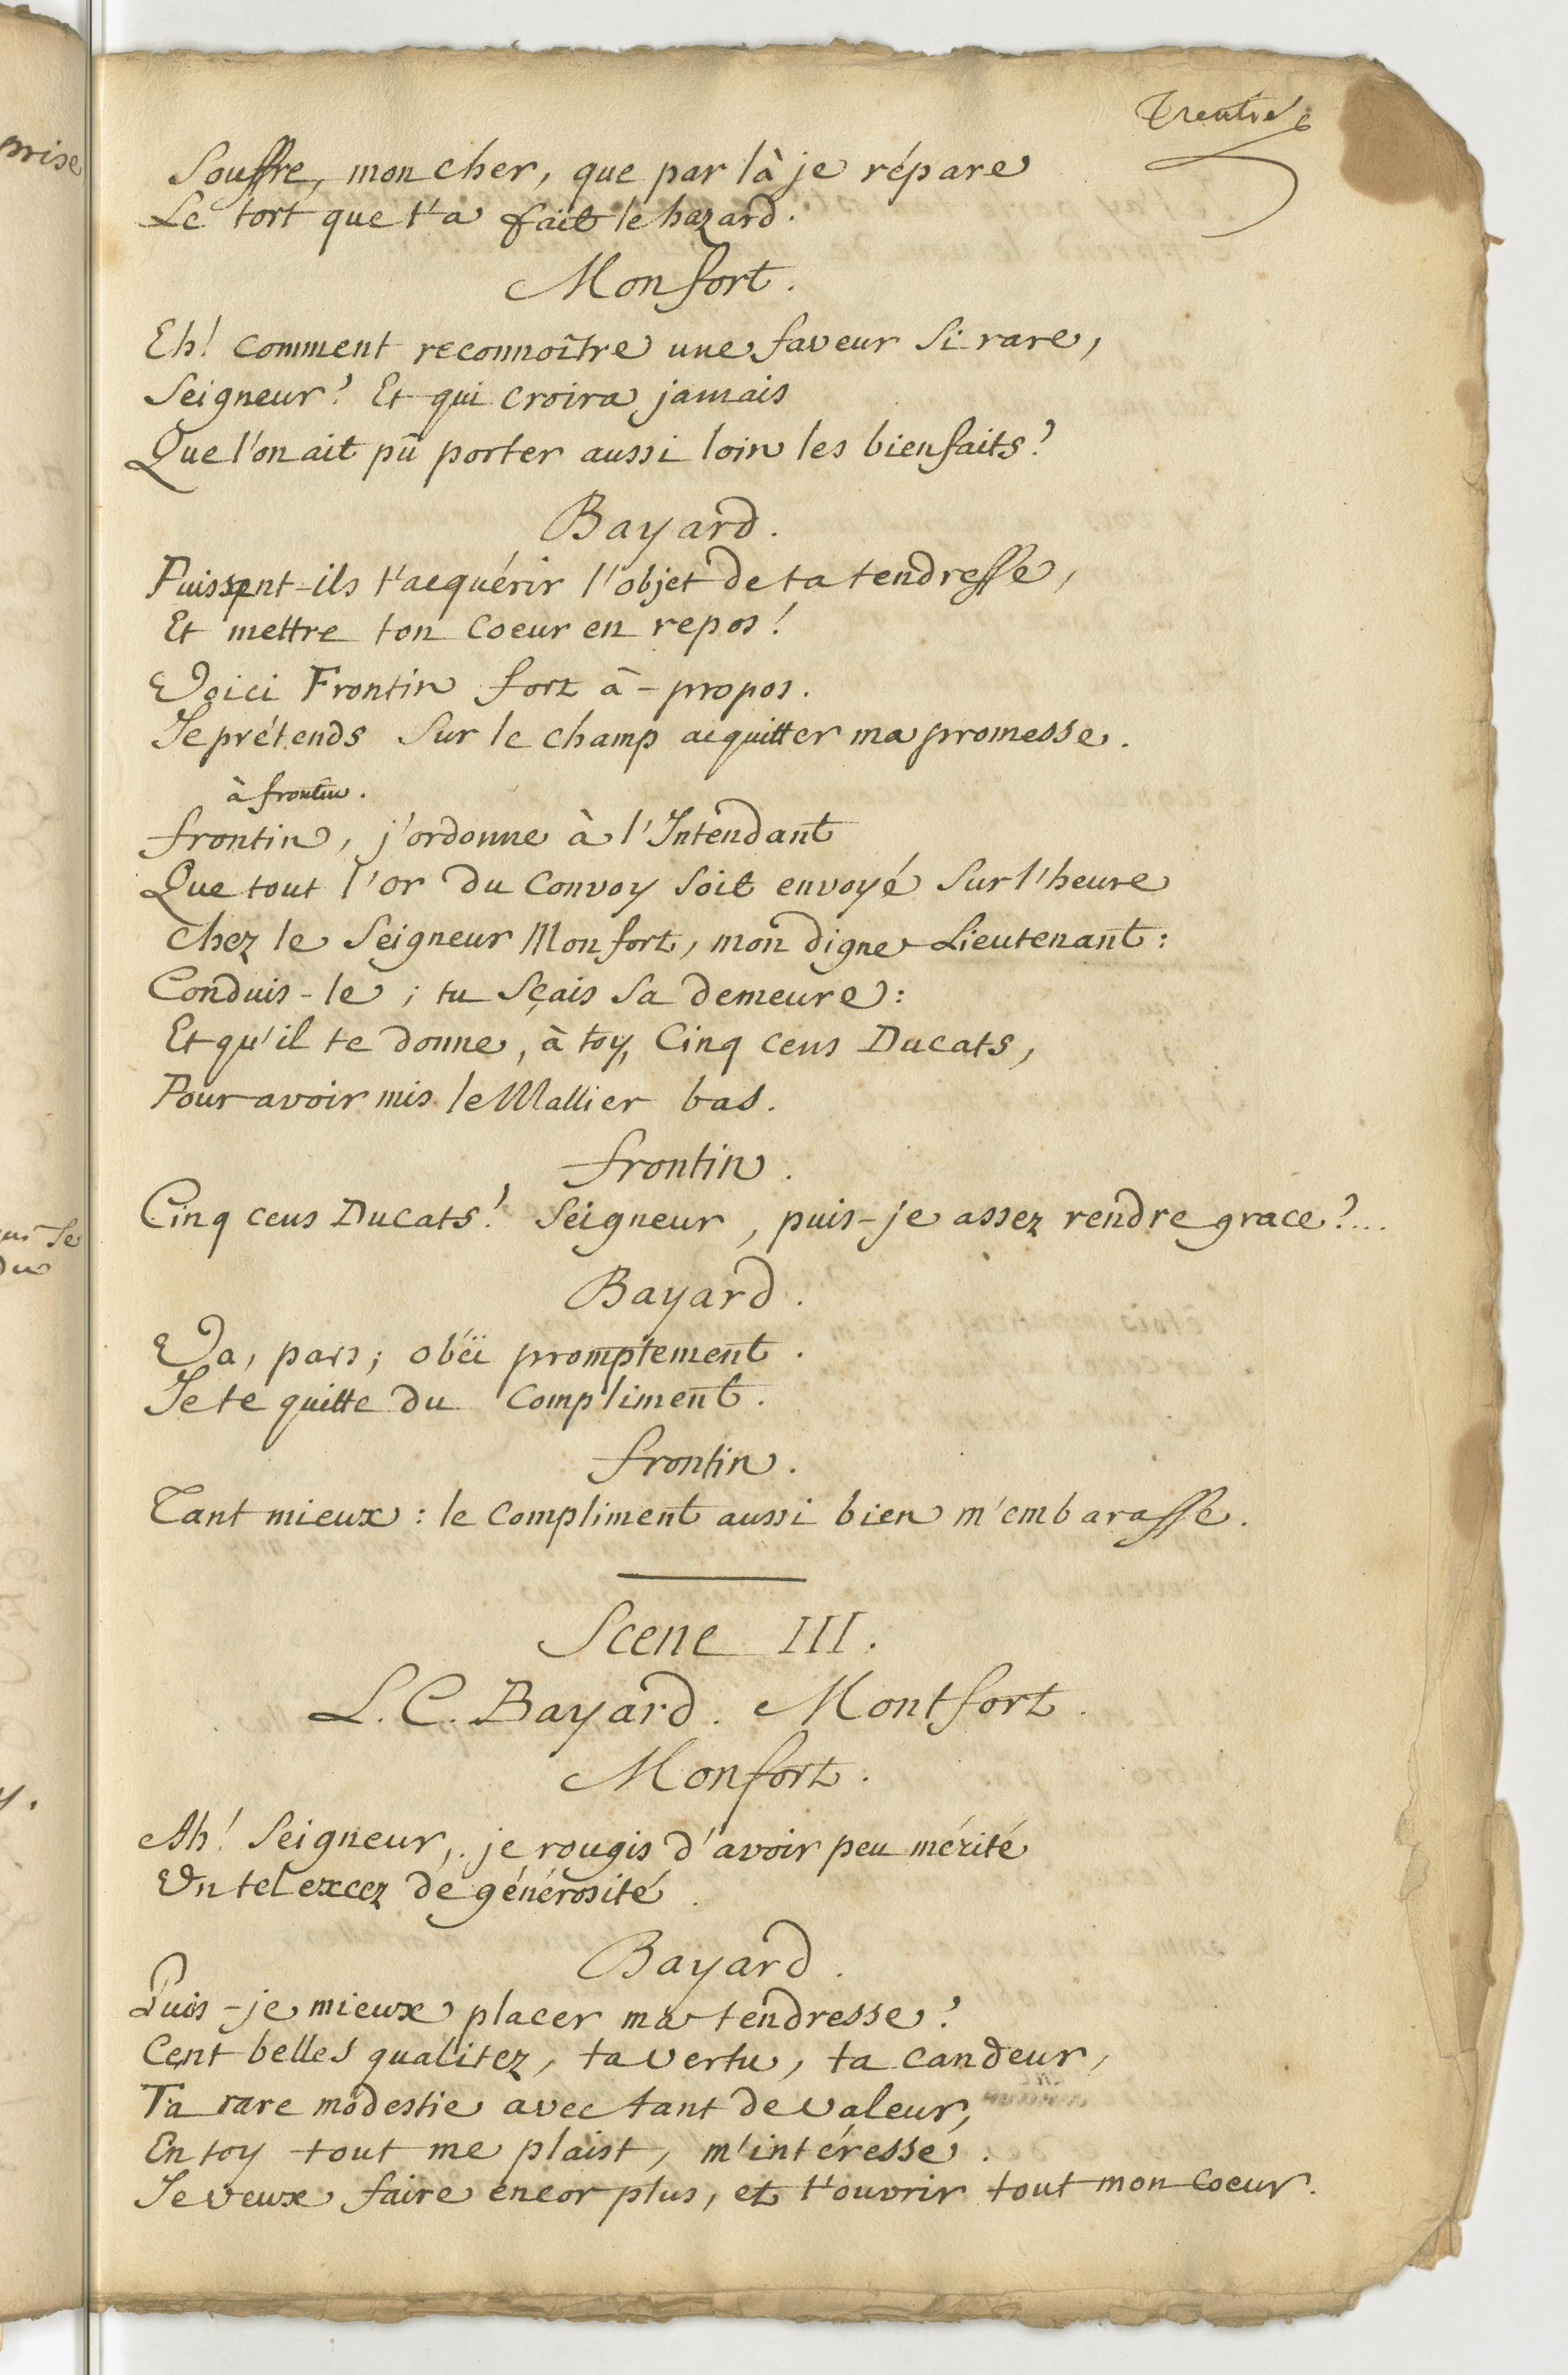 Trentie
Souffre, mon cher, que par là je répare
Le tort que t'a fait le hazard.
Monfort.
Eh! comment reconnoître une faveur si rare,
Seigneur? Et qui croira jamais
Que l'on ait pû porter aussi loin les bienfaits?
Bayard.
Puissent-ils t'acquérir l'objet de ta tendresse,
Et mettre ton coeur en repos!
Voici Frontin fort à-propos.
Je prétends sur le champ acquitter ma promesse.
à frontin.
frontin, j'ordonne à l'Intendant
Que tout l'or du Convoy soit envoyé sur l'heure
Chez le Seigneur Monfort, mon digne Lieutenant:
Conduis-le; tu sçais sa demeure:
Et qu'il te donne, à toy, Cinq cens Ducats,
Pour avoir mis le Mallier bas.
frontin.
Cinq cens Ducats! Seigneur, puis-je assez rendre grace?...
Bayard.
Va, pars; obéï promptement.
Je te quitte du Compliment.
frontin.
Tant mieux: le compliment aussi bien m'embarasse.
Scene III.
L. C. Bayard. Montfort.
Monfort.
Ah! Seigneur, je rougis d'avoir peu mérité
Un tel excez de générosité.
Bayard.
Puis-je mieux placer ma tendresse?
Cent belles qualitez, ta vertu, ta candeur,
Ta rare modestie avec tant de valeur,
En toy tout me plaist, m'intéresse.
Je veux faire encor plus, et t'ouvrir tout mon coeur.